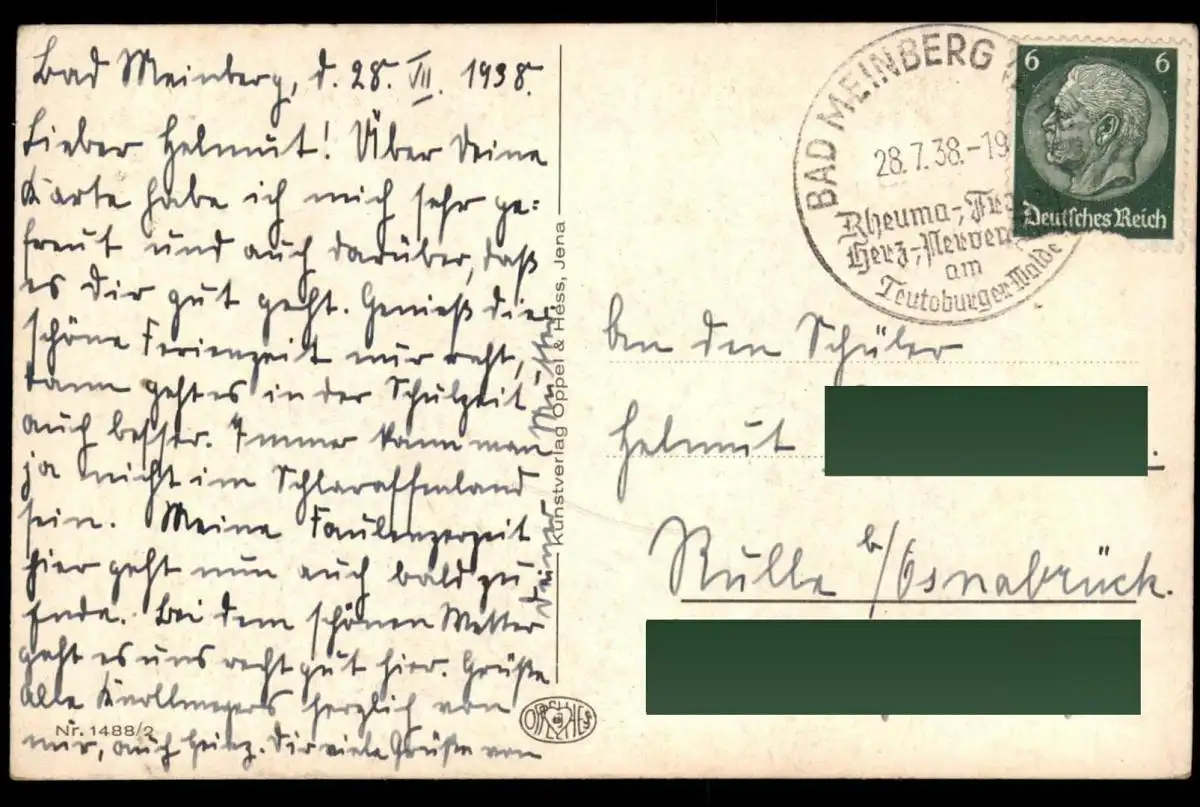 Bad Meinberg, d. 28. VII. 1938.
Lieber Helmut! Über Deine
Karte habe ich mich sehr ge=
freut und auch darüber, daß
es Dir gut geht. Genieß die
schöne Ferienzeit nur recht,
dann geht es in der Schulzeit
auch besser. Immer kann man
ja nicht im Schlaraffenland
sein. Meine Faulenzerzeit
hier geht nun auch bald zu
Ende. Bei dem schönen Wetter
geht es uns recht gut hier. Grüße
alle Knollmeyers herzlich von
mir, auch Heinz. Dir viele Grüße von
Deiner Mutter
Nr. 1488/2
Kunstverlag Oppel & Hess, Jena
BAD MEINBERG
28.7.38.-19
Rheuma-, Fra
Herz-, Nerven
am
Teutoburger Walde
6 6
Deutsches Reich
An den Schüler
Helmut
Rulle b/Osnabrück.